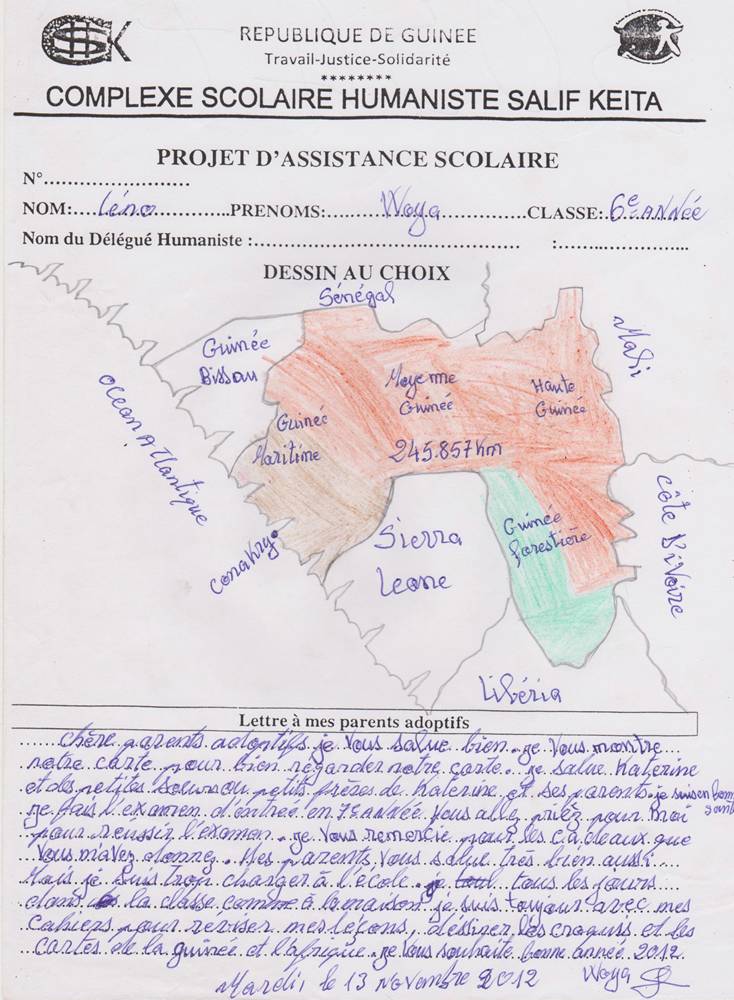 REPUBLIQUE DE GUINEE
Travail-Justice-Solidarité
********
COMPLEXE SCOLAIRE HUMANISTE SALIF KEITA
PROJET D'ASSISTANCE SCOLAIRE
N°........................
NOM:.....Léno..............PRENOMS:.........Woya................CLASSE:.6e ANNée
Nom du Délégué Humaniste :................................................ :.......................
DESSIN AU CHOIX
Sénégal
Guinée
Bissau
Mali
Moyenne
Guinée
Haute
Guinée
Océan Atlantique
Guinée
Maritime
245.857Km
Conakry
Sierra
Leone
Guinée
forestière
Côte D'ivoire
Libéria
Lettre à mes parents adoptifs
chère parents adoptifs je vous salue bien. je vous montre
notre carte pour bien regarder notre carte. je salue Katerine
et des petites soeurs ou petits frères de Katerine et ses parents. je suis en bonne
santé
je fais l'examen d'entrée en 7e ANNée Vous allez priez pour moi
pour reussir l'examen. je Vous remercie pour les cadeaux que
Vous m'avez donnez. Mes parents Vous salue très bien aussi
Mais je suis trop charger à l'école. tous les jours
dans la classe comme à la maison je suis toujour avec mes
cahiers pour réviser mes leçons, déssiner les croquis et les
cartes de la guinée et l'afrique. je vous souhaite bonne année 2012
Mardi, le 13 Novembre 2012 Woya